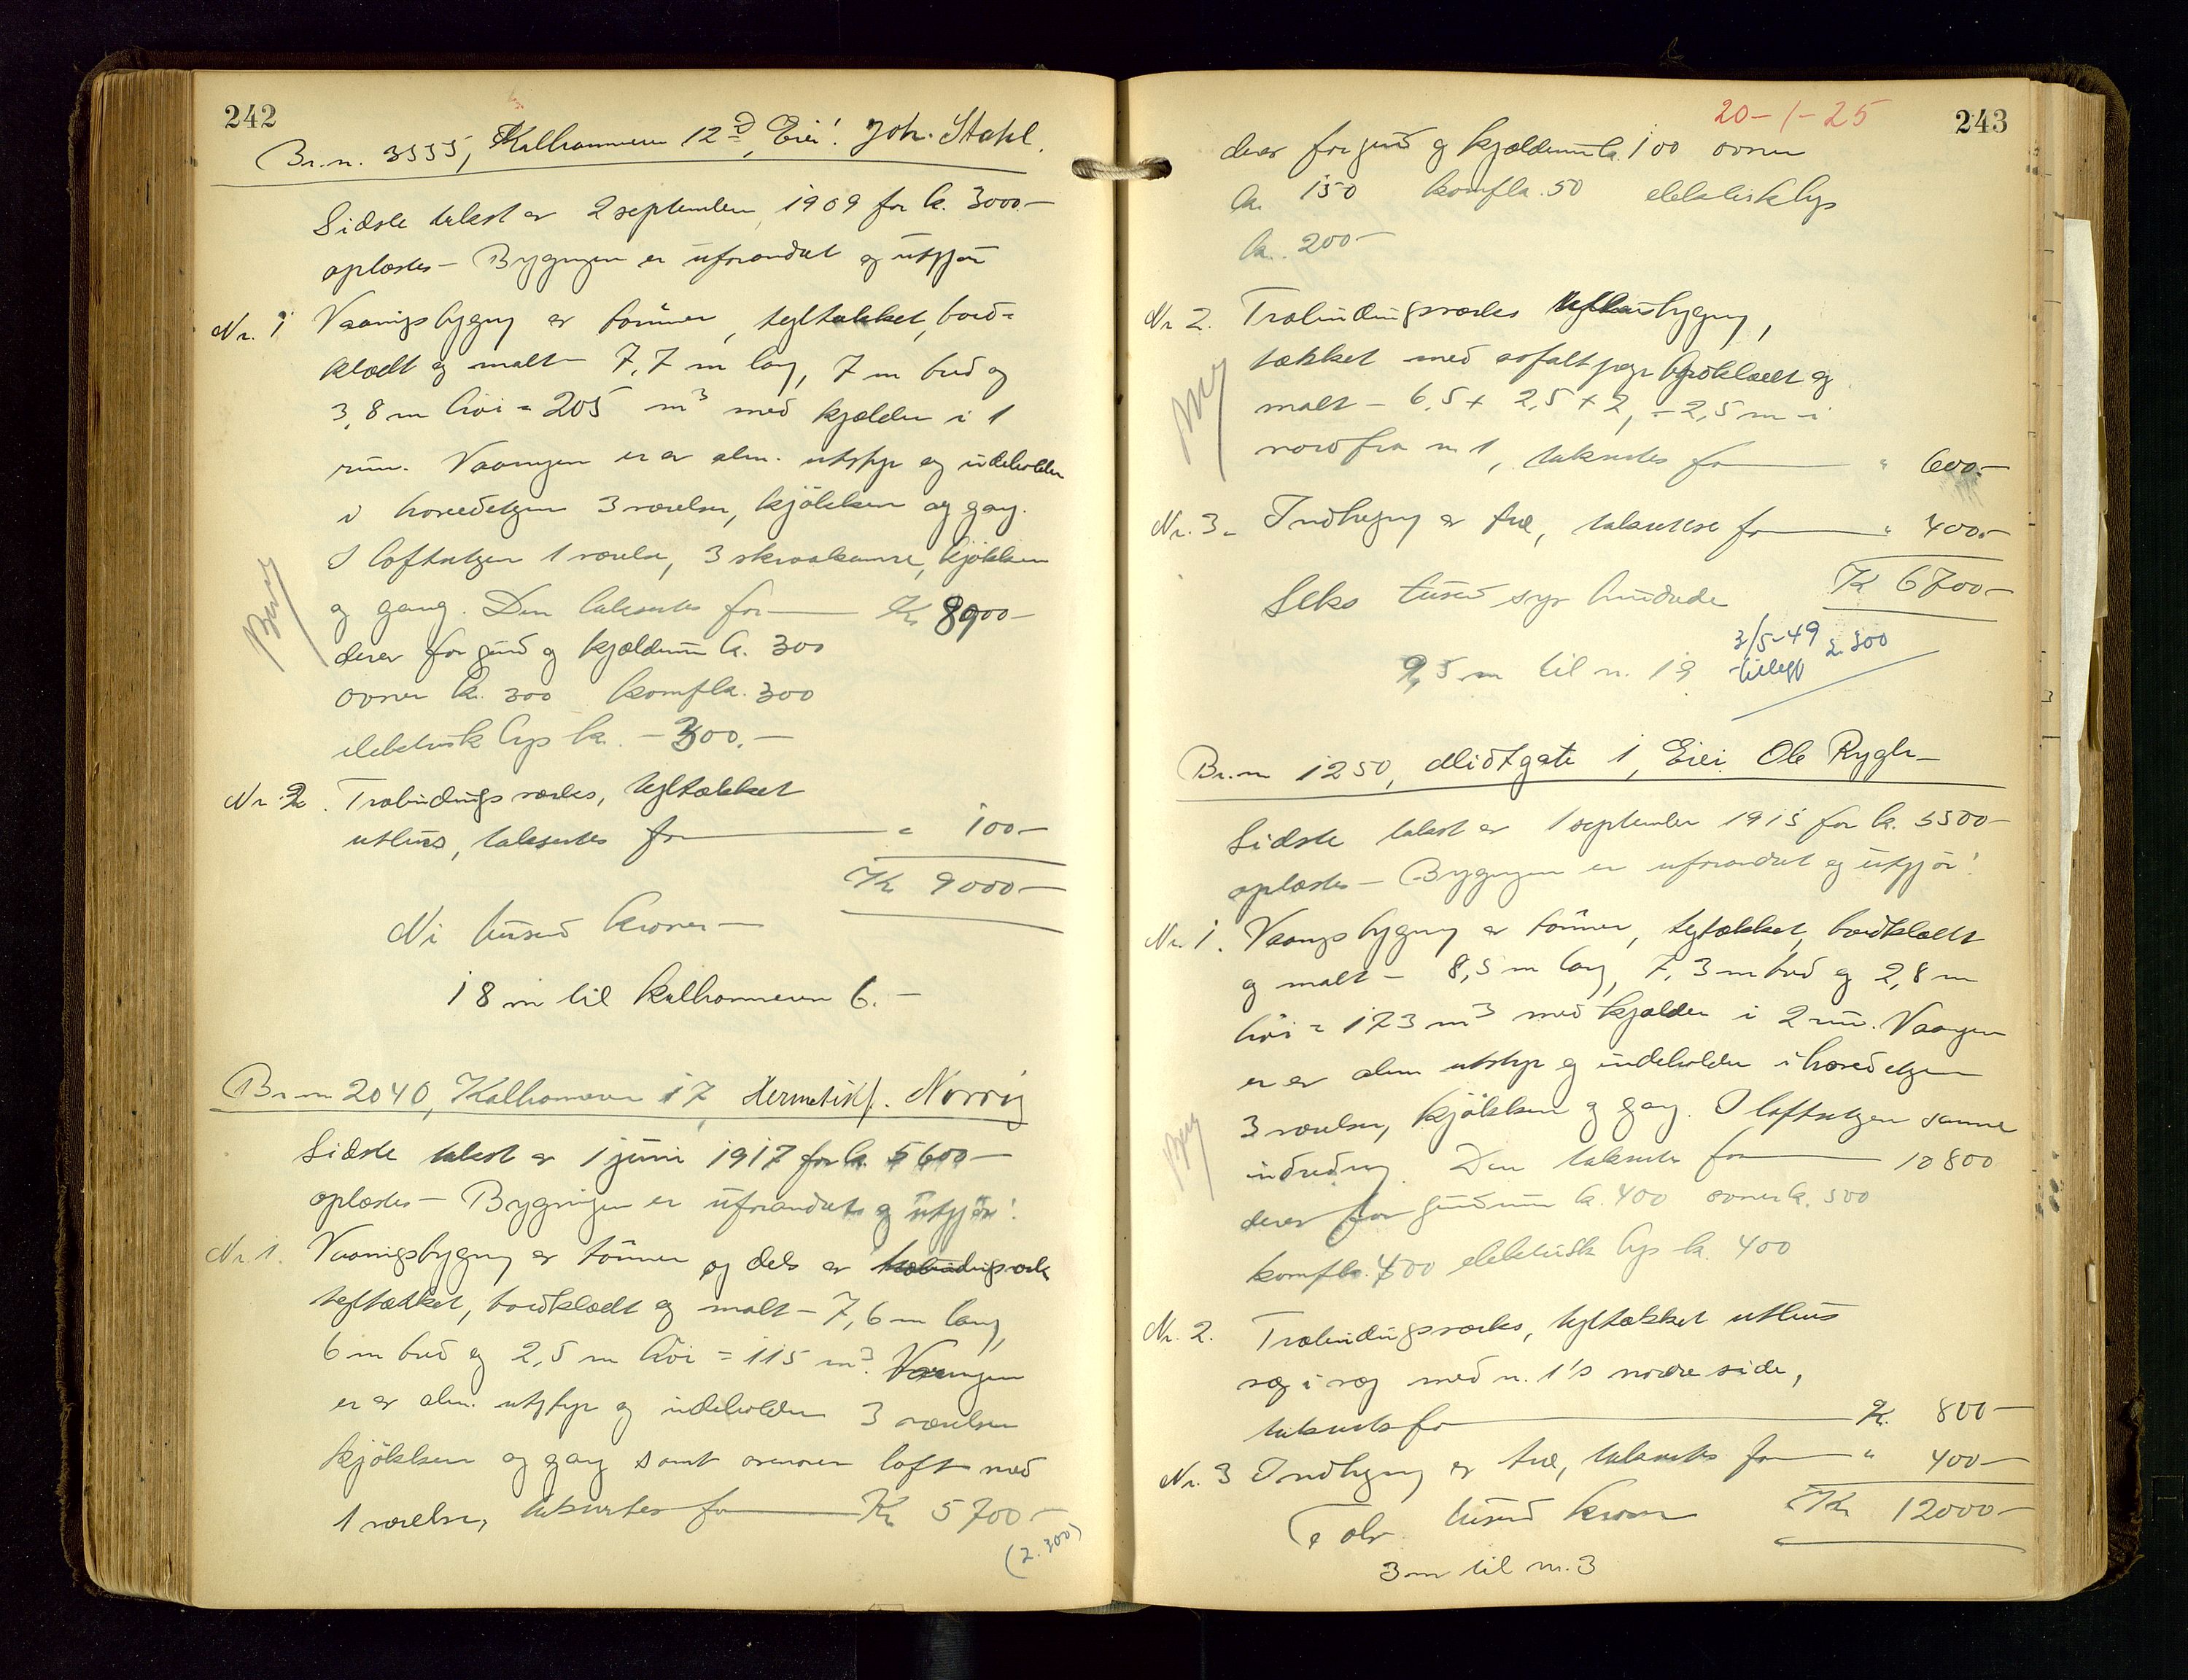 242
Br.n. 3535, Kalhammeren 12d, Eier: Joh. Stahl.
Sidste takst av 2 september 1909 for kr. 3000.-
oplæstes - Bygningen er uforandret og utgjør
Nr. 1 Vaaningsbygning av tømmer, tegltækket, bord-
klædt og malt - 7,7 m lang, 7 m bred og
3,8 m høi = 205 m3 med kjælder i 1
rum. Vaaningen er av alm. utstyr og indeholder
i hovedetagen 3 værelser, kjøkken og gang.
I loftsetagen 1 værelse, 3 skraakamre, kjøkken
og gang. Den takseres for Kr 8900-
derav for grund og kjældermur kr. 300
ovner kr. 300 komfkr. 300
elektrisk lys kr. - 300.-
Nr 2. Træbindingsverks, tegltækket
uthus, takseres for " 100-
Kr 9000-
Ni tusend kroner -
18 m til Kalhammeren 6.-
Br.n 2040, Kalhammeren 17, Hermetikf. Norrig
Sidste takst av 1 juni 1917 for kr. 5600-
oplæstes - Bygningen er uforandret og utgjør:
Nr. 1. Vaaningsbygning av tømmer og dels av træbindingsverk
tegltækket, bordklædt og malt - 7,6 m lang,
6 m bred og 2,5 m høi = 115 m3. Vaaningen
er av alm. utstyr og indeholder 3 værelser
kjøkken og gang samt ovenover loft med
1 værelse, takseres for Kr 5700-
(2.300)
20-1-25
243
derav for grund og kjældermur kr. 100 ovner
kr. 150 komfkr. 50 elektrisk lys
kr. 200-
Nr 2. Træbindingsverks uthusbygning,
tækket med asfaltpap bordklædt og
malt - 6,5 x 2,5 x 2, - 2,5 m i
nord fra nr 1, takseres for " 600.-
Nr. 3. Indhegning av træ, takseres for " 400.-
Kr 6700-
Seks tusend syv hundrede
3/5-49 2.300
tillegg
9,5 m til n. 19
Br.n 1250, Midtgate 1, Eier Ole Rygh-
Sidste takst av 1 september 1915 for kr. 5500-
oplæstes - Bygningen er uforandret og utgjør:
Nr. 1. Vaaningsbygning av tømmer, tegltækket, bordklædt
og malt - 8,5 m lang, 7,3 m bred og 2,8 m
høi = 173 m3 med kjælder i 2 rum. Vaaningen
er av alm utstyr og indeholder i hovedetagen
3 værelser, kjøkken og gang. I loftsetagen samme
indredning. Den takseres for 10800
derav for grundmur kr. 400 ovner kr. 500
komfkr. 400 elektrisk lys kr. 400
Nr. 2. Træbindingsverks, tegltækket uthus
væg i væg med n. 1's nordre side,
takseres for Kr. 800-
Nr. 3 Indhegning av træ, takseres for " 400-
Kr 12000-
Tolv tusend kroner
3 m til nr. 3